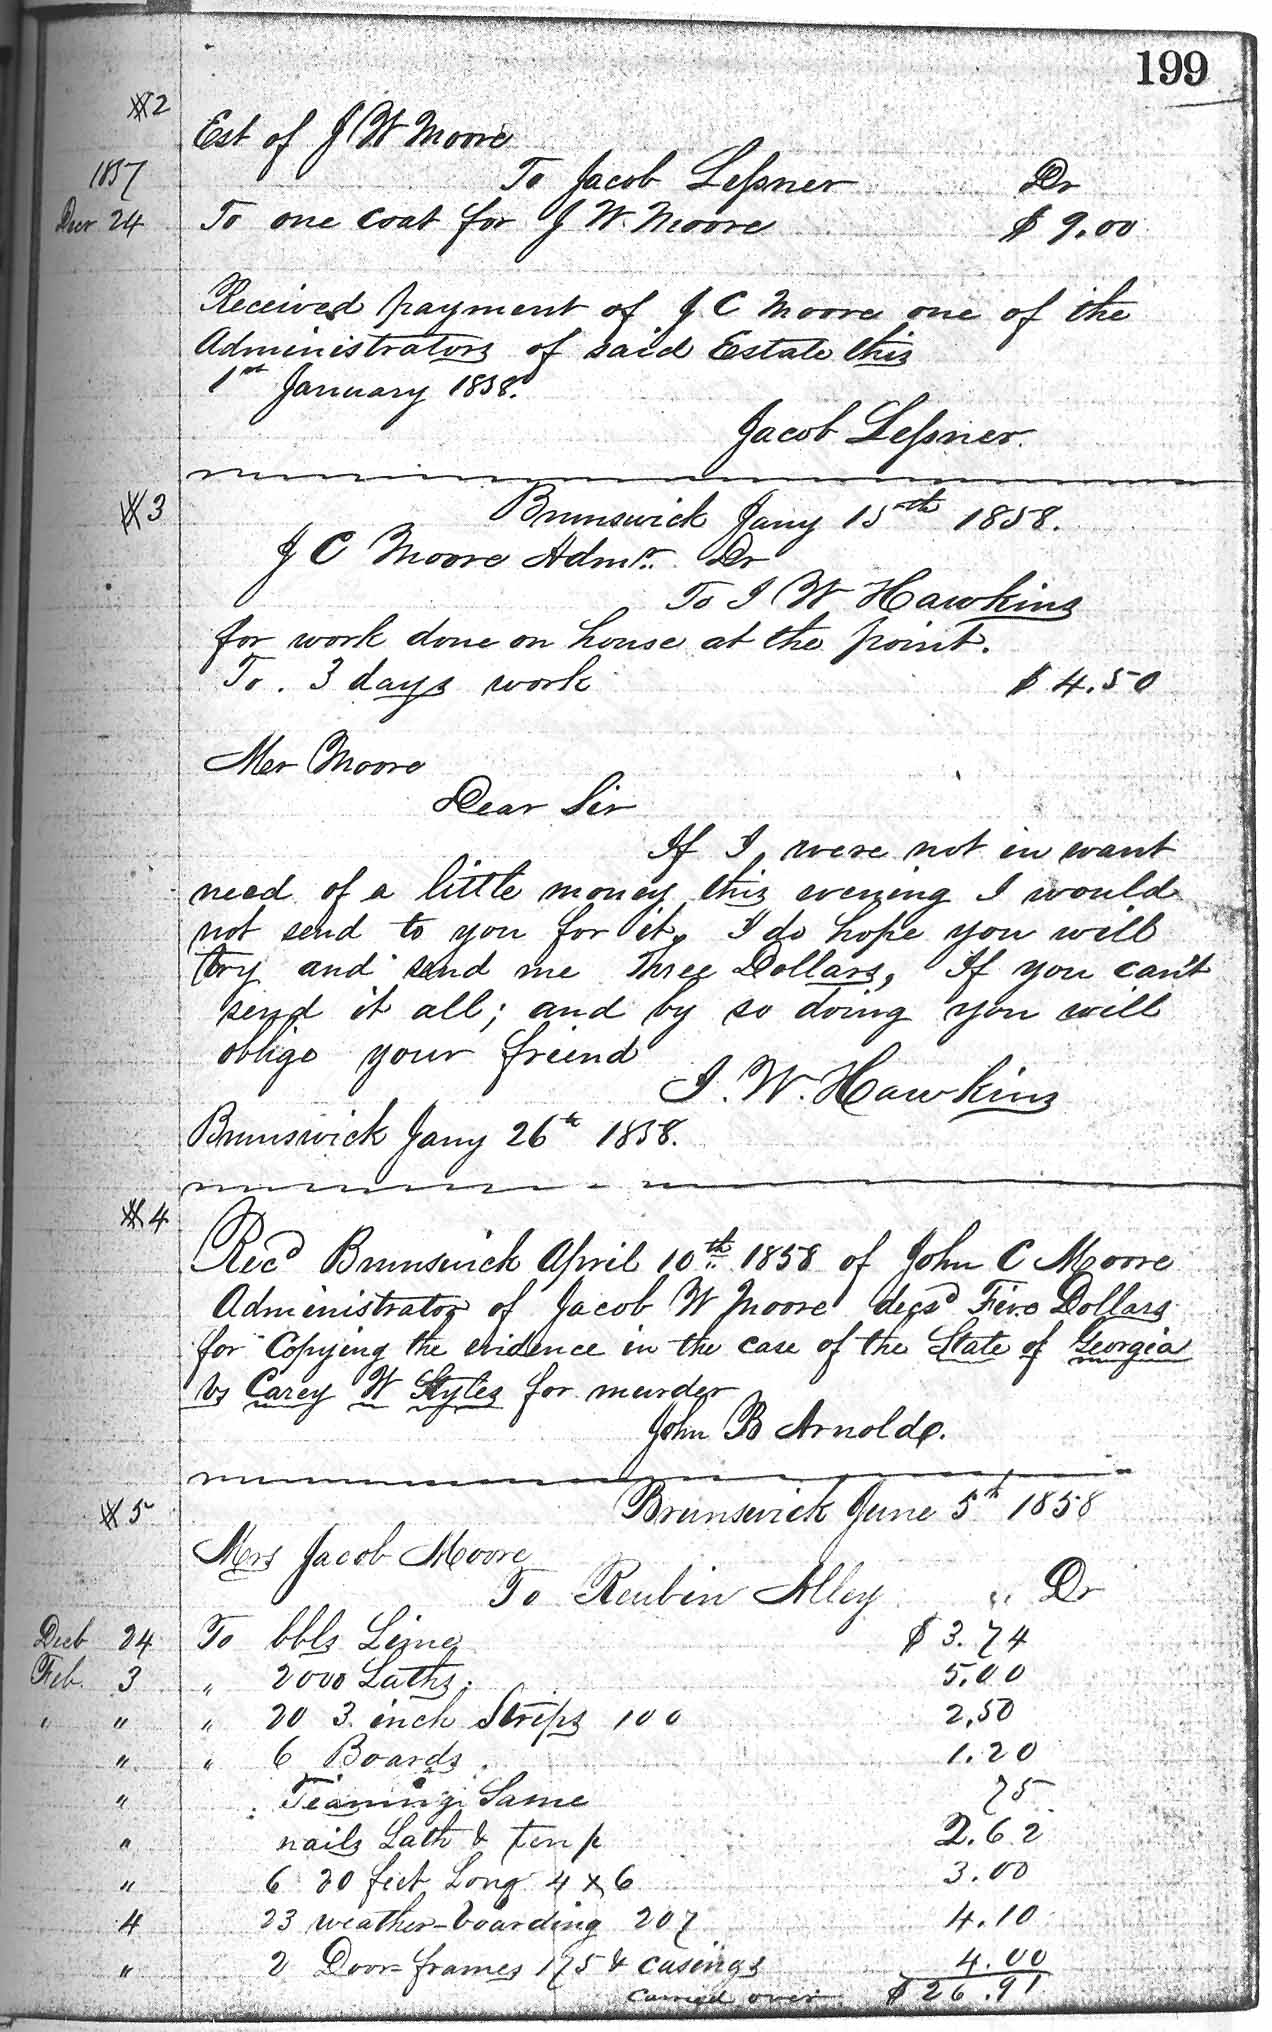 199
#2
Est of J W Moore
1857 To Jacob Leſsner Dr
Decr 24 To one coat for J W. Moore $ 9.00
Received payment of J C Moore one of the
Administrators of said Estate this
1st January 1858.
Jacob Leſsner.
#3 Brunswick Jany 15th 1858.
J C Moore Admr. Dr
To I W Hawkins
for work done on house at the point.
To. 3 days work $ 4.50
Mer Moore
Dear Sir
If I were not in want
need of a little money this evening I would
not send to you for it, I do hope you will
try and send me Three Dollars, If you can't
send it all; and by so doing you will
oblige your friend
I. W. Hawkins
Brunswick Jany 26th 1858.
#4
Recd Brunswick April 10th 1858 of John C Moore
Administrator of Jacob W Moore decsd Five Dollars
for Copying the evidence in the case of the State of Georgia
vs Carey W Styles for murder
John B Arnold.
#5 Brunswick June 5th 1858
Mrs Jacob Moore
To Reubin Alley " Dr
Decb 24 To bbls Lime $ 3.74
Feb. 3 " 2000 Laths. 5.00
" " " 20 3 inch Strips 100 2,50
" " 6 Boards. 1.20
" Teaming Same 75
" nails Lath & ten p 2.62
" 6 20 feet Long 4 x 6 3.00
4 23 weather-boarding 207 4.10
" 2 Door-frames 175 & casings 4.00
carried over $ 26.91